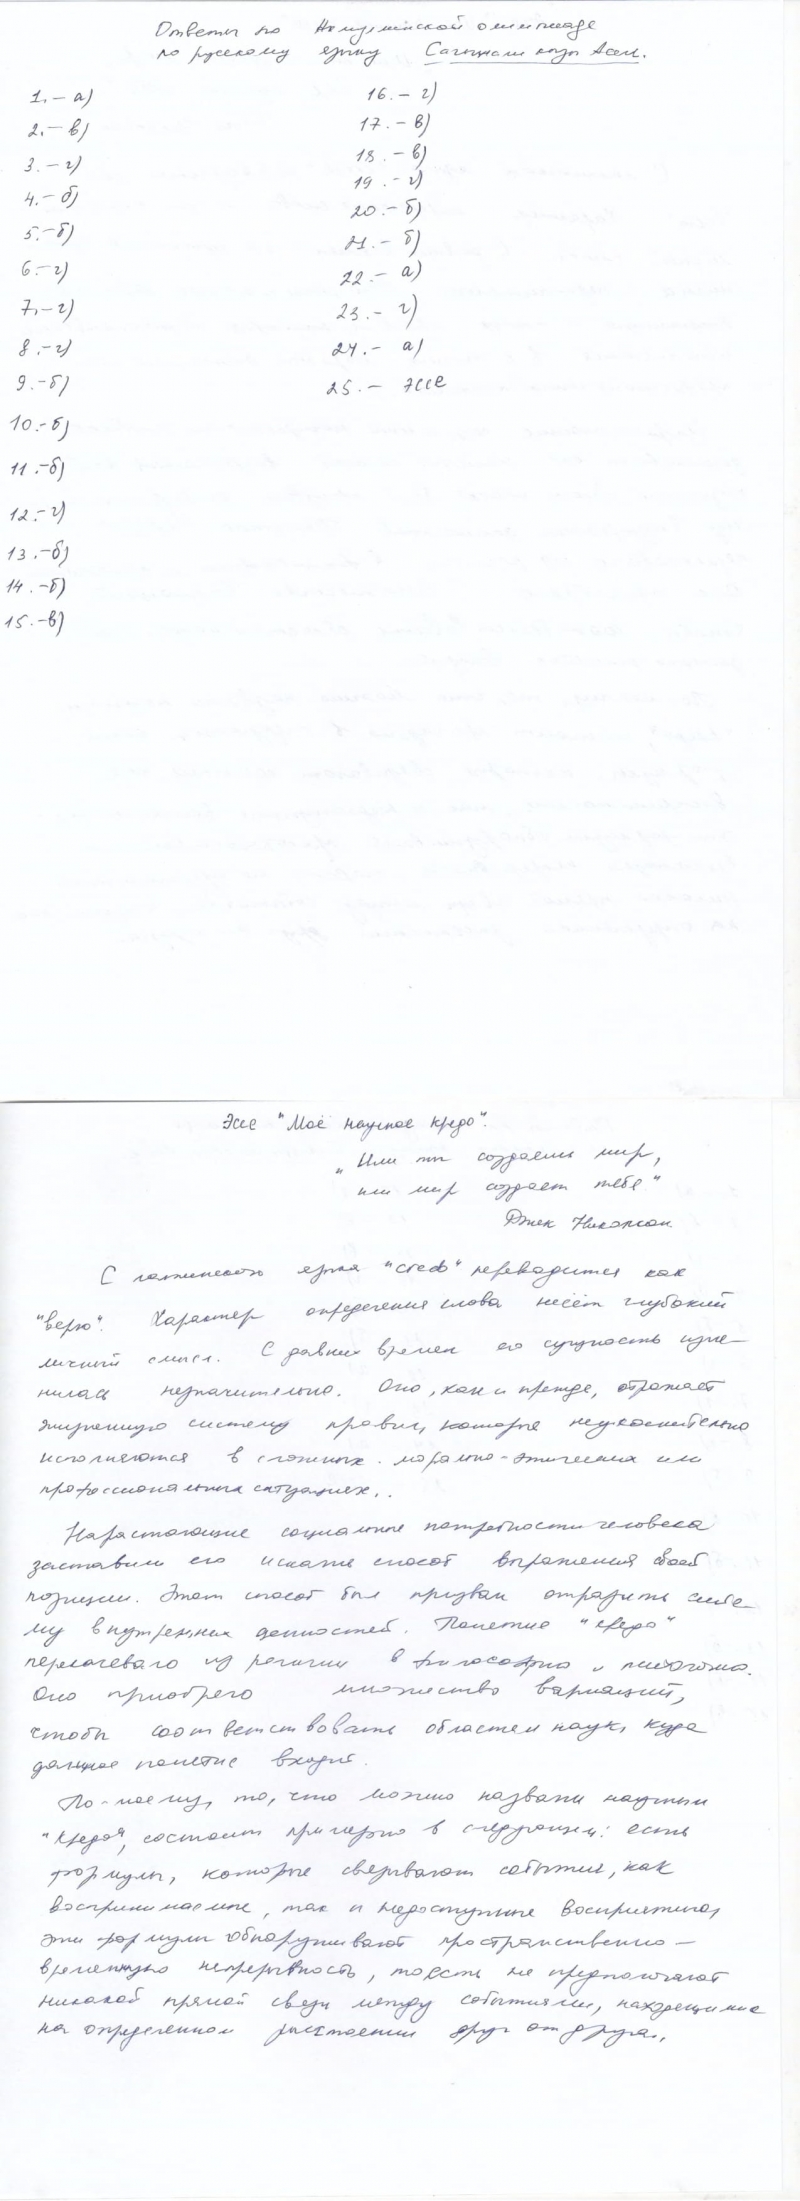 Ответы по олимпиаде
по русскому языку Асел.
1.– а)
2.– в)
3.– г)
4.– б)
5.–б)
6.–г)
7.–г)
8.–г)
9.–б)
10.–б)
11.–б)
12.–г)
13.–б)
14.–б)
15.–в)
16.– г)
17.– в)
18.– в)
19.– г)
20.– б)
21.– б)
22.– а)
23.– г)
24.– а)
25.– эссе
Эссе "Моё научное кредо".
„Или ты создаешь мир,
или мир создает тебя"
Джек Николсон
С латинского языка "credo" переводится как
"верю". Характер определения слова несёт глубокий
личный смысл. С давних времен его сущность изме-
нилась незначительно. Оно, как и прежде, отражает
жизненную систему правил, которые неукоснительно
исполняются в сложных морально-этических или
профессиональных ситуациях..
Нарастающие социальные потребности человека
заставили его искать способ выражения своей
позиции. Этот способ был призван отразить систе-
му внутренних ценностей. Понятие "кредо"
перекочевало из религии в философию и
Оно приобрело множество вариаций,
чтобы соответствовать областям наук, куда
данное понятие входит.
По-моему, то, что можно назвать научным
"кредо", состоит примерно в следующем: есть
формулы, которые связывают события, как
воспринимаемые, так и недоступные восприятию,
эти формулы обнаруживают пространственно –
временную непрерывность, то есть не предполагают
никакой прямой связи между событиями, находящимися
на определенном расстоянии друг от друга..